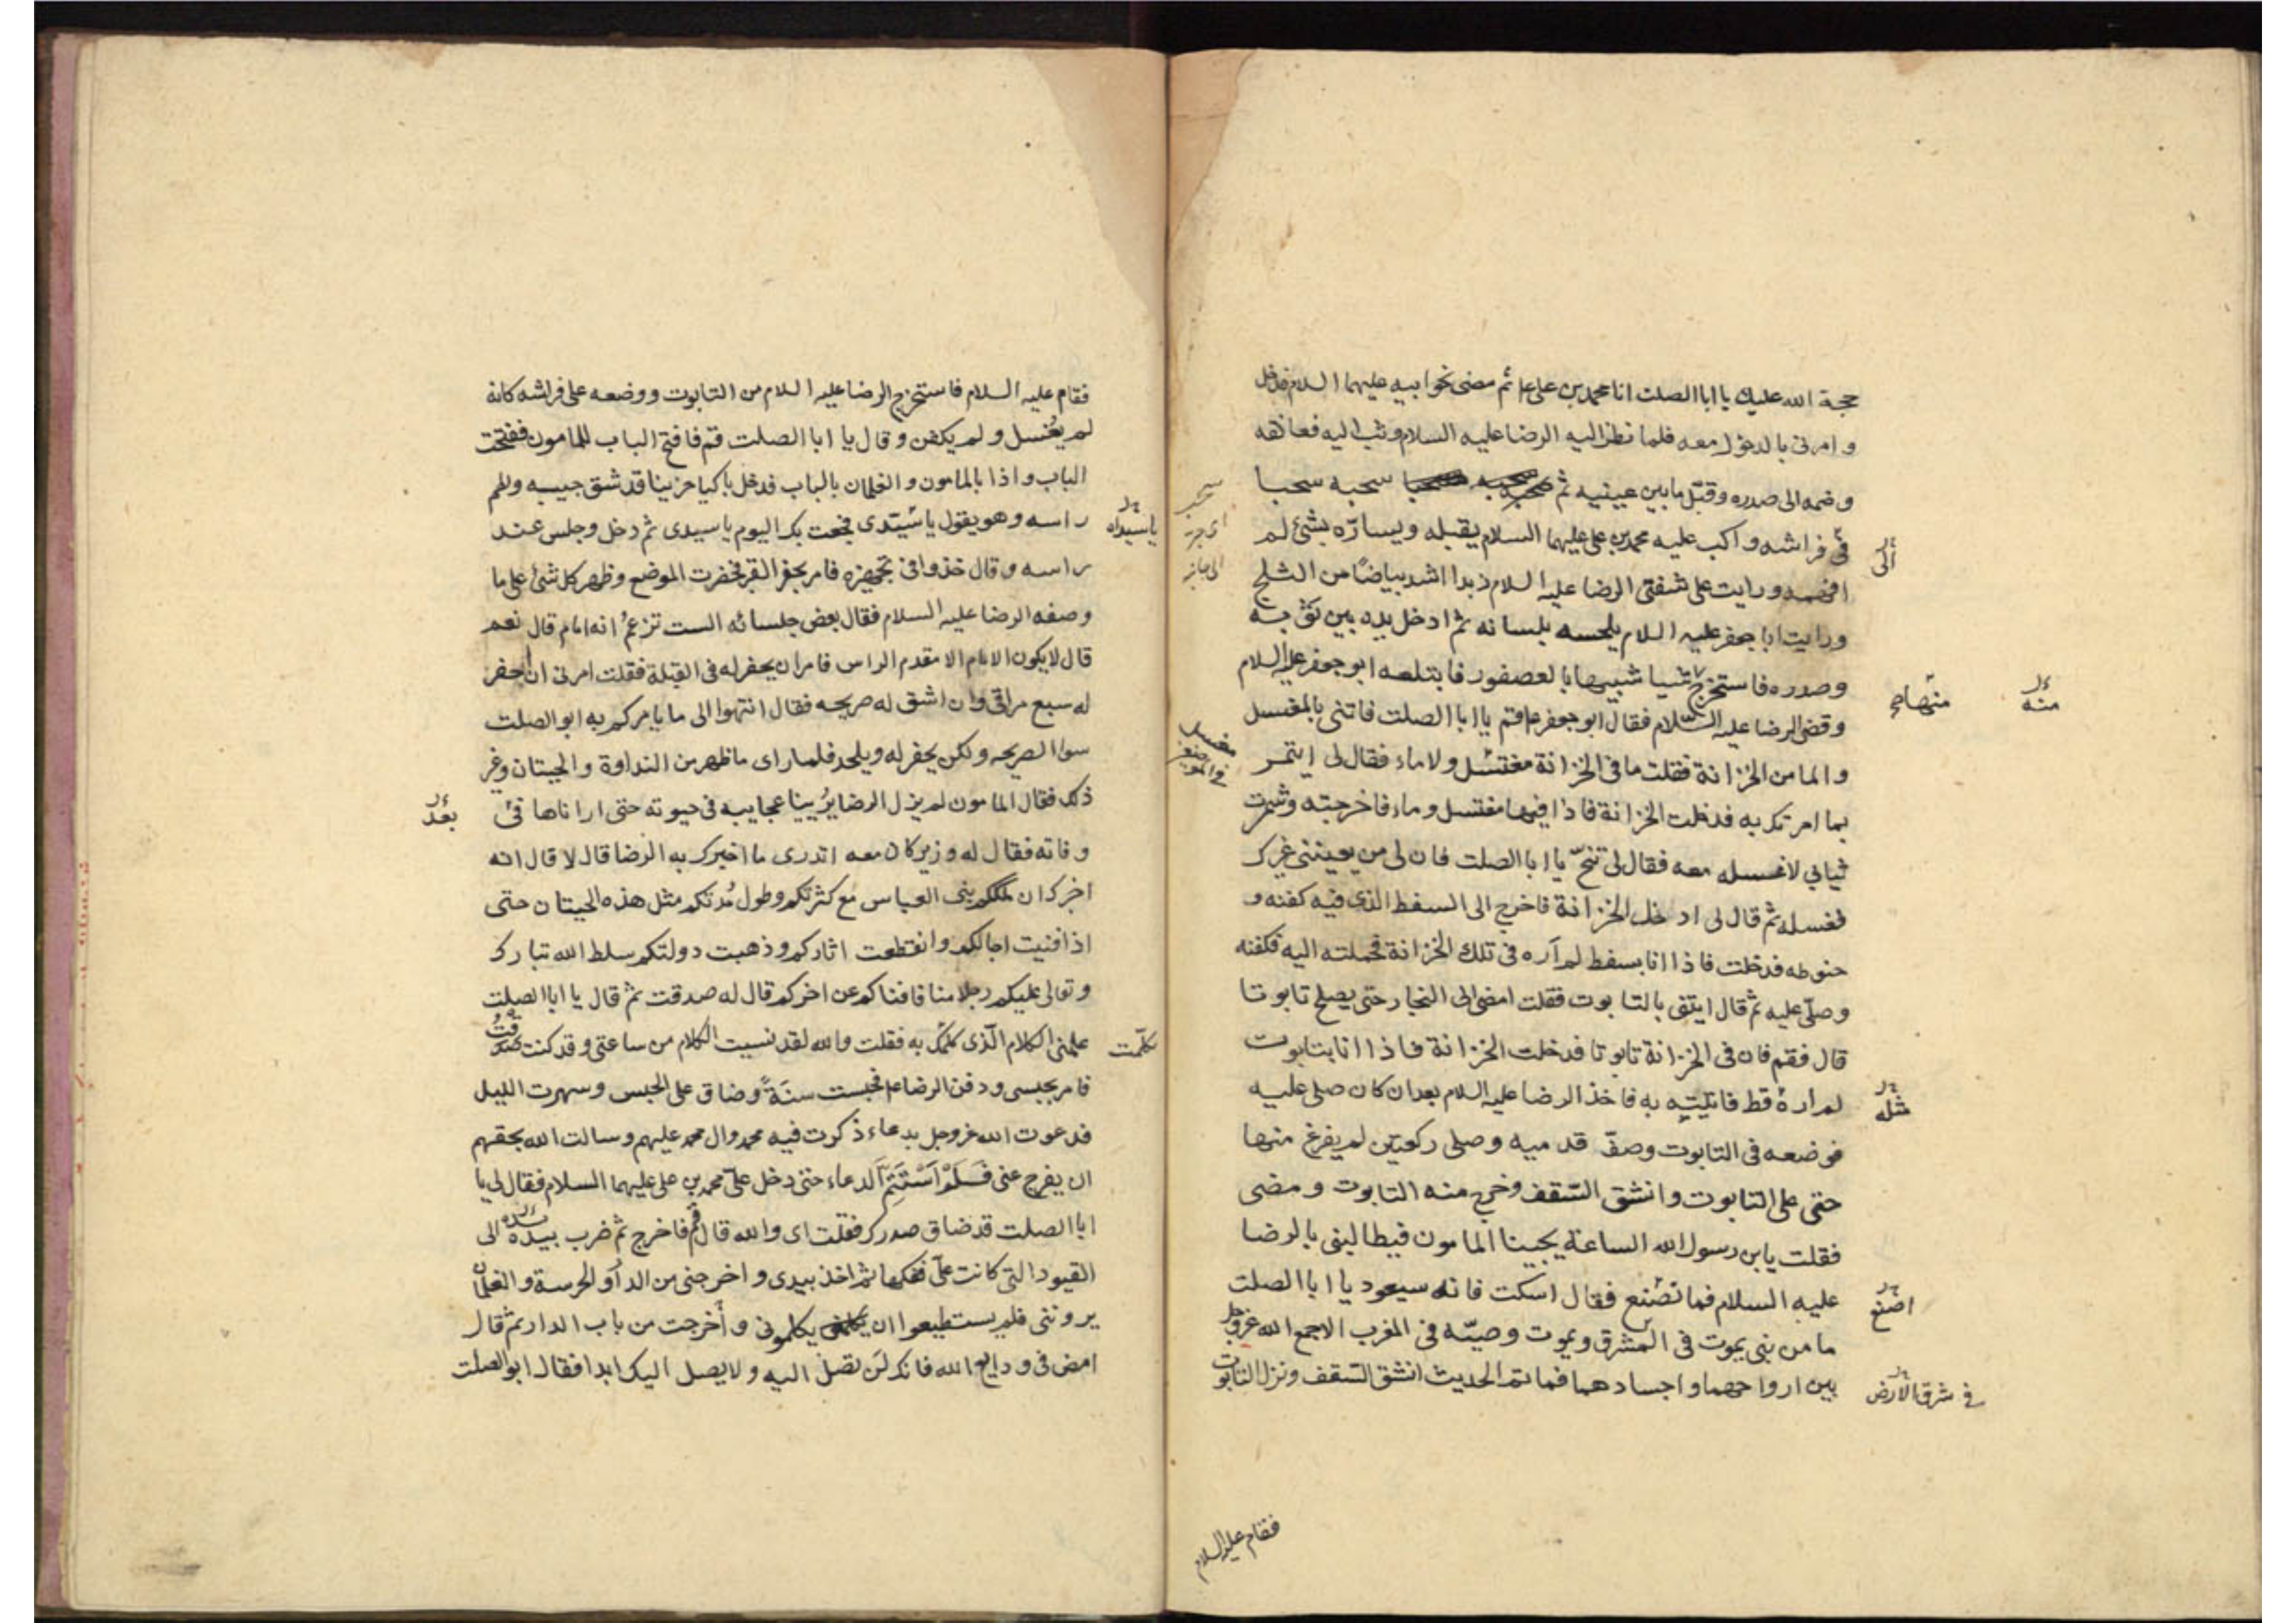 حجة الله عليك يا ابا الصلت انا محمد بن على ع ثم مضى نحو ابيه عليهما السلام فدخل
و امرنى بالدخول معه فلما نظر اليه الرضا عليه السلام وثب اليه فعانقه
و ضمه الى صدره و قبّل ما بين عينيه ثم سحبه سحبا
فى فراشه و اكب عليه محمد بن على عليهما السلام يقبله ويسارّه بشئ لم
الى
افهمه ورايت على شفتى الرضا عليه السلام زبدا اشد بياضًا من الثلج
ورايت ابا جعفر عليه السلام يلحسه بلسانه ثم ادخل يده بين ثوبه
وصدره فاستخرج شيا شبيها بالعصفور فابتلعه ابو جعفر عليه السلام
منهما
منه
و قضى الرضا عليه السلام فقال ابو جعفر ع قم يا ابا الصلت فاتنى بالمغتسل
و الما من الخزانة فقلت ما فى الخزانة مغتسل ولا ماء فقال لى ايتمر
بما امرتك به فدخلت الخزانة فاذا فيها مغتسل و ماء فاخرجته وشمرت
ثيابي لاغسله معه فقال لى تنحّ يا ابا الصلت فان لى من يعيننى غيرك
فغسله ثم قال لى ادخل الخزانة فاخرج الى السفط الذى فيه كفنه و
حنوطه فدخلت فاذا انا بسفط لم آره فى تلك الخزانة فحملته اليه فكفنه
وصلّى عليه ثم قال ايتنى بالتابوت فقلت امضى الى النجار حتى يصلح تابوتا
قال فقم فان فى الخزانة تابوتا فدخلت الخزانة فاذا انا بتابوت
لم اره قط فاتيته به فاخذ الرضا عليه السلام بعد ان كان صلى عليه
مثله
فوضعه فى التابوت وصفّ قدميه وصلى ركعتين لم يفرغ منها
حتى على التابوت وانشق السّقف وخرج منه التابوت و مضى
فقلت يابن رسول الله الساعة يجيبنا المامون فيطالبنى بالرضا
عليه السلام فما نصنع فقال اسكت فانه سيعود يا ابا الصلت
اصنع
ما من نبى يموت فى المشرق ويموت وصيّه فى المغرب الا جمع الله عزوجل
بين ارواحهما و اجسادهما فما تم الحديث انشق السّقف ونزل التابوت
فى شرق الارض
فقام عليه السلام
فقام عليه السلام فاستخرج الرضا عليه السلام من التابوت ووضعه على فراشه كانه
لم يغسل و لم يكفن و قال يا ابا الصلت قم فافتح الباب للمامون ففتحت
الباب و اذا بالمامون و الغلمان بالباب فدخل باكيا حزينا قد شق جيبه ولطم
راسه وهو يقول يا سيّدى فجعت بك اليوم يا سيدى ثم دخل وجلس عند
يا سيداه
راسه وقال خذوا فى تجهيزه فامر بحفر القبر فحفرت الموضع وظهر كل شئ على ما
وصفه الرضا عليه السلام فقال بعض جلسائه الست تزعم انه امام قال نعم
قال لا يكون الامام الا مقدم الراس فامر ان يحفر له فى القبلة فقلت امرنى ان احفر
له سبع مراقى وان اشق له ضريحه فقال انتهوا الى ما يامركم به ابو الصلت
سوا الضريح و لكن يحفر له ويلحد فلما راى ما ظهر من النداوة و الحيتان وغير
ذلك فقال المامون لم يزل الرضا يرُيينا عجايبه فى حيوته حتى اراناها فى
بعد
وفاته فقال له وزير كان معه اتدرى ما اخبرك به الرضا قال لا قال انه
اخبرك ان ملككم بنى العباس مع كثرتكم وطول مُدتكم مثل هذه الحيتان حتى
اذا فنيت اجالكم وانقطعت اثاركم وذهبت دولتكم سلط الله تبارك
و تعالى عليكم رجلا منا فافناكم عن اخركم قال له صدقت ثم قال يا ابا الصلت
علمنى الكلام الّذى كلمك به فقلت والله لقد نسيت الكلام من ساعتى وقد كنت صدقتُ
تكلّمت
فامر بحبسى ودفن الرضا ع فحبست سنَةً وضاق على الحبس وسهرت الليل
فدعوت الله عزوجل بدعاء ذكرت فيه محمد وال محمد عليهم وسالت الله بحقهم
ان يفرج عنى فَلَمْ اَسْتَتِمَّ الدعاء حتى دخل علىّ محمد بن على عليهما السلام فقال لى يا
ابا الصلت قد ضاق صدرك فقلت اى والله قال قم فاخرج ثم ضرب بيده الى
القيود التى كانت علىّ ففكها ثم اخذ بيدى و اخرجنى من الدار و الحرسة و الغلمان
يروننى فلم يستطيعوا ان يكلمونى و أخرجت من باب الدار ثم قال
امض فى ودايع الله فانك لن تصل اليه ولا يصل اليك ابدا فقال ابو الصلت